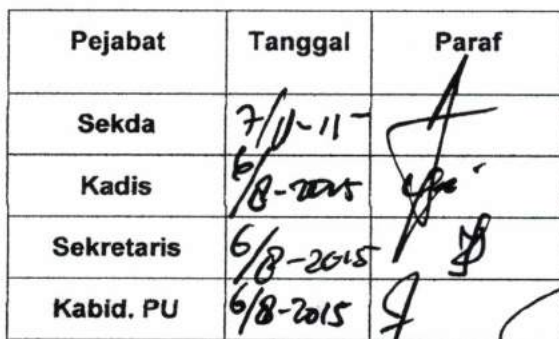 Pejabat Tanggal Paraf
Sekda
Kadis 6/8-2015
Sekretaris 6/8-2015
Kabid. PU 6/8-2015